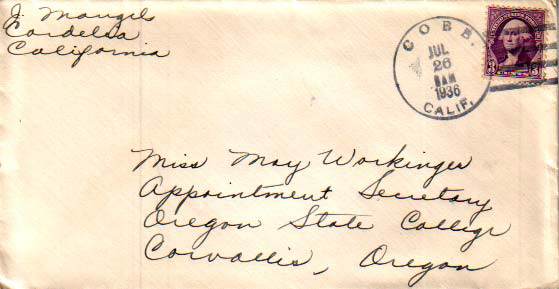 J. Mangels
Cordelia
California
COBB.
JUL
26
8AM
1936
CALIF.
3
3
Miss May Workinger
Appointment Secretary
Oregon State College
Corvallis, Oregon